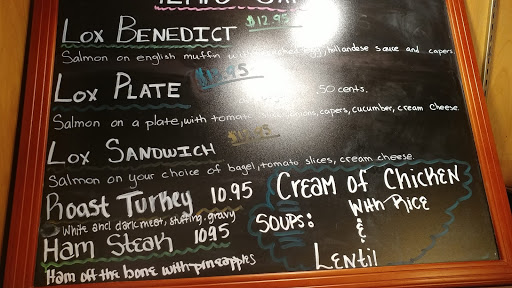 Lox Benedict $12.95
Salmon on english muffin with poached egg, hollandese sauce and capers.
Lox Plate .95
.50 cents.
Salmon on a plate, with tomato slices, onions, capers, cucumber, cream cheese.
Lox Sandwich
Salmon on your choice of bagel, tomato slices, cream cheese.
Roast Turkey 10.95
White and dark meat, stuffing, gravy
Ham Steak 10.95
Ham off the bone with pineapples
Cream of Chicken
With Rice
Soups:
&
Lentil